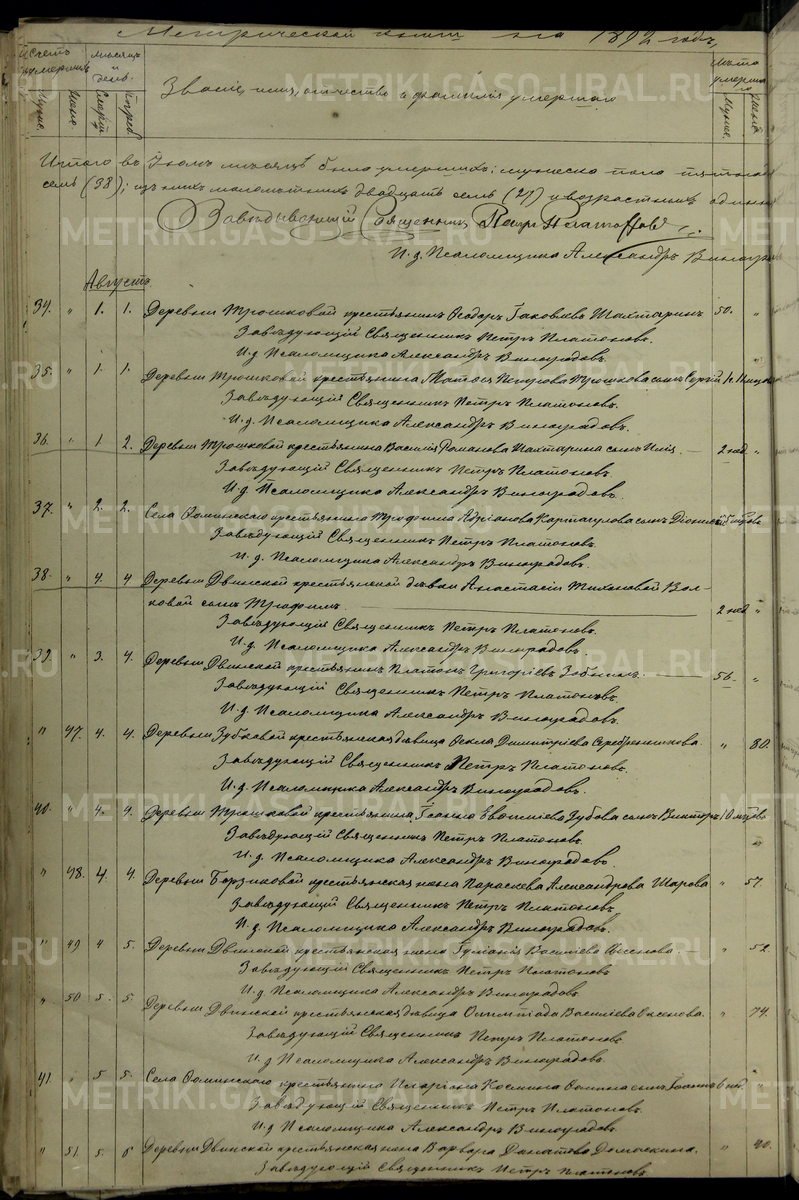 Метрической книги на 1892 годъ,
Счетъ умершихъ
Мѣсяцъ и день
Званіе, имя, отчество и фамилія умершаго
Лѣта умершаго
Муж.
Жен.
Смерт.
Погреб.
Муж.
Жен.
Итого въ Іюлѣ мѣсяцѣ было умершихъ: мужеска пола
семь (38); изъ нихъ малолѣтнихъ двадцать семь (27) и возрастныхъ
Завѣдывающій Священникъ Петръ Платоновъ
И. д. Псаломщика Александръ
Августъ
34. " 1. 1. Деревни Трошковой крестьянинъ Ѳедоръ Іаковлевъ Шахтаринъ 50. "
Завѣдующій Священникъ Петръ Платоновъ.
И. д. Псаломщика Александръ Виноградовъ.
35. " 1. 1. Деревни Трошковой крестьянина Матѳея Петрова Трошкова сынъ Сергій
Завѣдующій Священникъ Петръ Платоновъ.
И. д. Псаломщика Александръ Виноградовъ.
36. " 1 2. Деревни Трошковой крестьянина Василія Романова Шахтарина сынъ Илія. 2 нед. "
Завѣдующій Священникъ Петръ Платоновъ.
И. д. Псаломщика Александръ Виноградовъ.
37. " 2. 2. Села Ѳоминскаго крестьянина Трофима Адріанова сынъ Діонисій
Завѣдующій Священникъ Петръ Платоновъ.
И. д. Псаломщика Александръ Виноградовъ.
38. " 4. 4 Деревни Двинской крестьянской дѣвки Анастасіи Тихоновой Вол-
ковой сынъ Трофимъ 2 нед. "
Завѣдующій Священникъ Петръ Платоновъ.
И. д. Псаломщика Александръ Виноградовъ.
39. " 3. 4. Деревни Двинской крестьянинъ Платонъ Григоріевъ Зобнинъ. 56. "
Завѣдующій Священникъ Петръ Платоновъ.
И. д. Псаломщика Александръ Виноградовъ.
" 47. 4. 4. Деревни Зубковой крестьянская дѣвица Ѳекла Димитріева Серебренникова. " 80.
Завѣдующій Священникъ Петръ Платоновъ.
И. д. Псаломщика Александръ Виноградовъ.
40. " 4. 4. Деревни Трошковой крестьянина Іоанна Зубова сынъ Викторъ
Завѣдующій Священникъ Петръ Платоновъ.
И. д. Псаломщика Александръ Виноградовъ.
" 48. 4. 4. Деревни Борзиковой крестьянская жена Параскева Александрова Шарова " 57.
Завѣдующій Священникъ Петръ Платоновъ
И. д. Псаломщика Александръ Виноградовъ.
" 49 4 5. Деревни Двинской крестьянская жена Васильева " 52.
Завѣдующій Священникъ Петръ Платоновъ
И. д. Псаломщика Александръ Виноградовъ
" 50. 5. 5. Деревни Двинской крестьянская дѣвица Олимпіада Васильева " 74.
Завѣдующій Священникъ Петръ Платоновъ
И. д. Псаломщика Александръ Виноградовъ.
41. " 5 5. Села Ѳоминскаго крестьянина Космина Ѳомина сынъ Іоаннъ
Завѣдующій Священникъ Петръ Платоновъ.
И. д. Псаломщика Александръ Виноградовъ
" 51. 5. 6 Деревни Двинской крестьянская жена Варвара " 40.
Завѣдующій Священникъ Петръ Платоновъ
METRIKI.GASO-URAL.RU